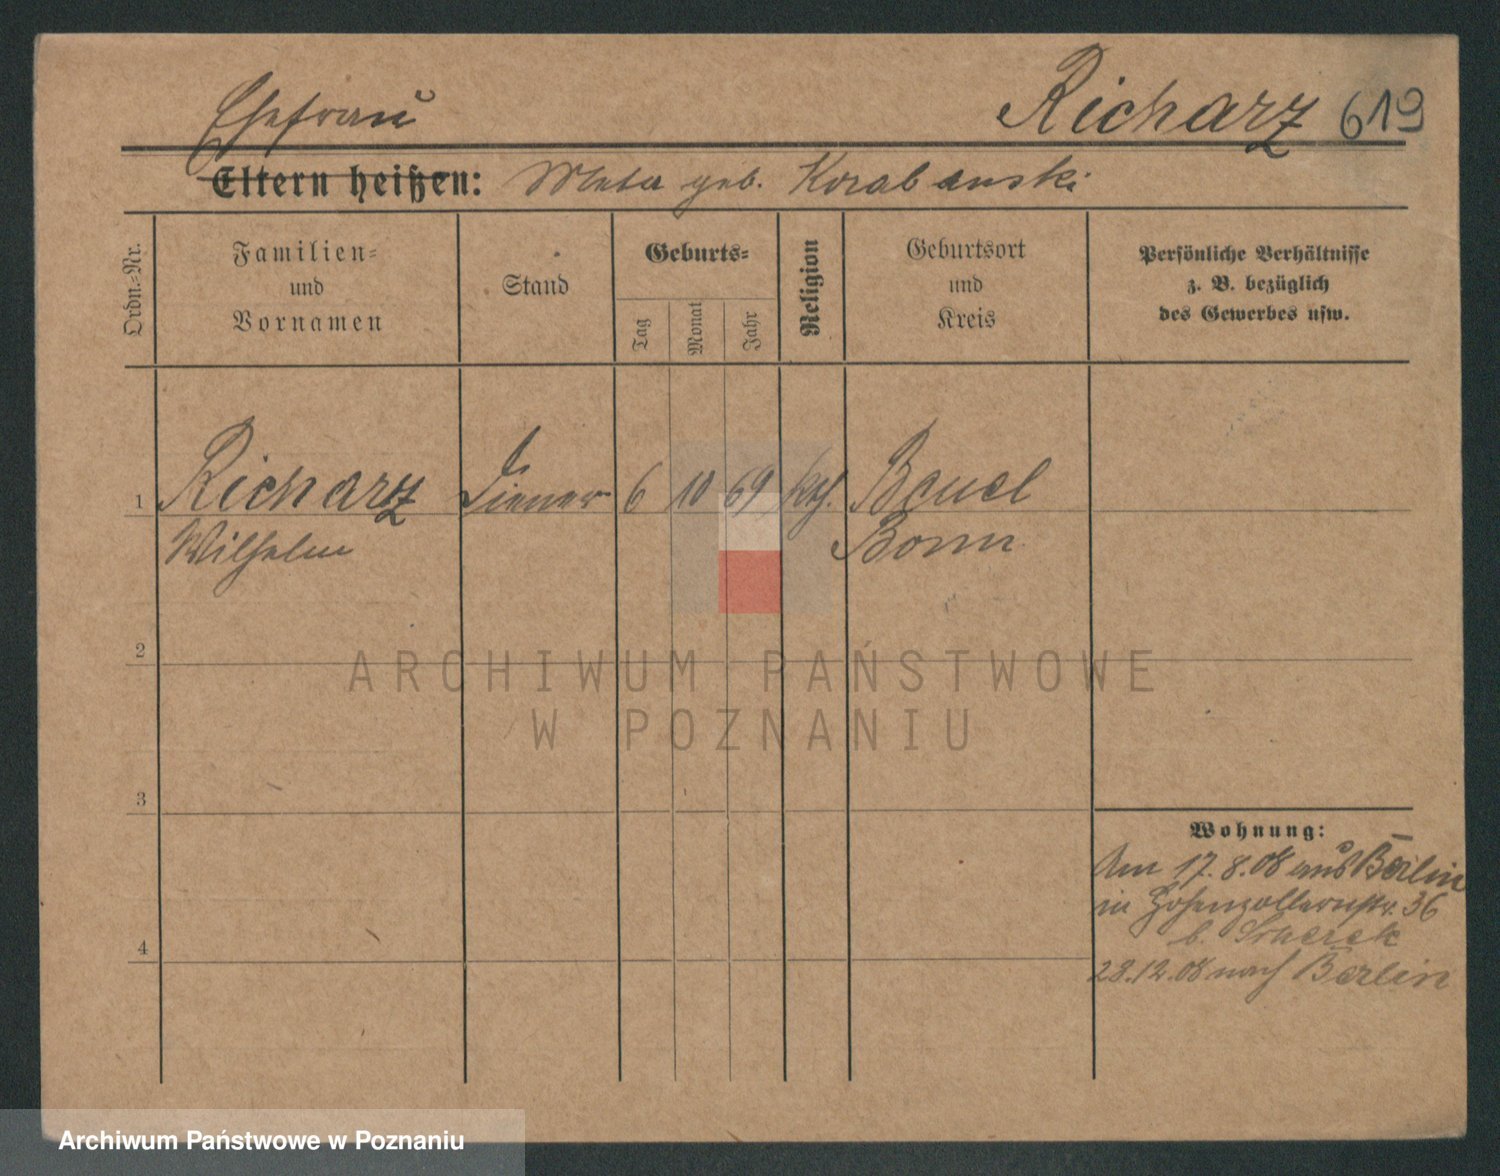 Ehefrau
Richarz 619
Eltern heißen: Meta geb. Korabanski
Ordn.=Nr.
Familien=
und
Vornamen
Stand
Geburts=
Tag
Monat
Jahr
Religion
Geburtsort
und
Kreis
Persönliche Verhältnisse
z. B. bezüglich
des Gewerbes usw.
1 Richarz Diener 6 10 69 kth. Beuel
Wilhelm Bonn
2
3
4
Wohnung:
Am 17.8.08 aus Berlin
in Hohenzollernstr. 36
b.
28.12.08 nach Berlin
ARCHIWUM PAŃSTWOWE
W POZNANIU
Archiwum Państwowe w Poznaniu